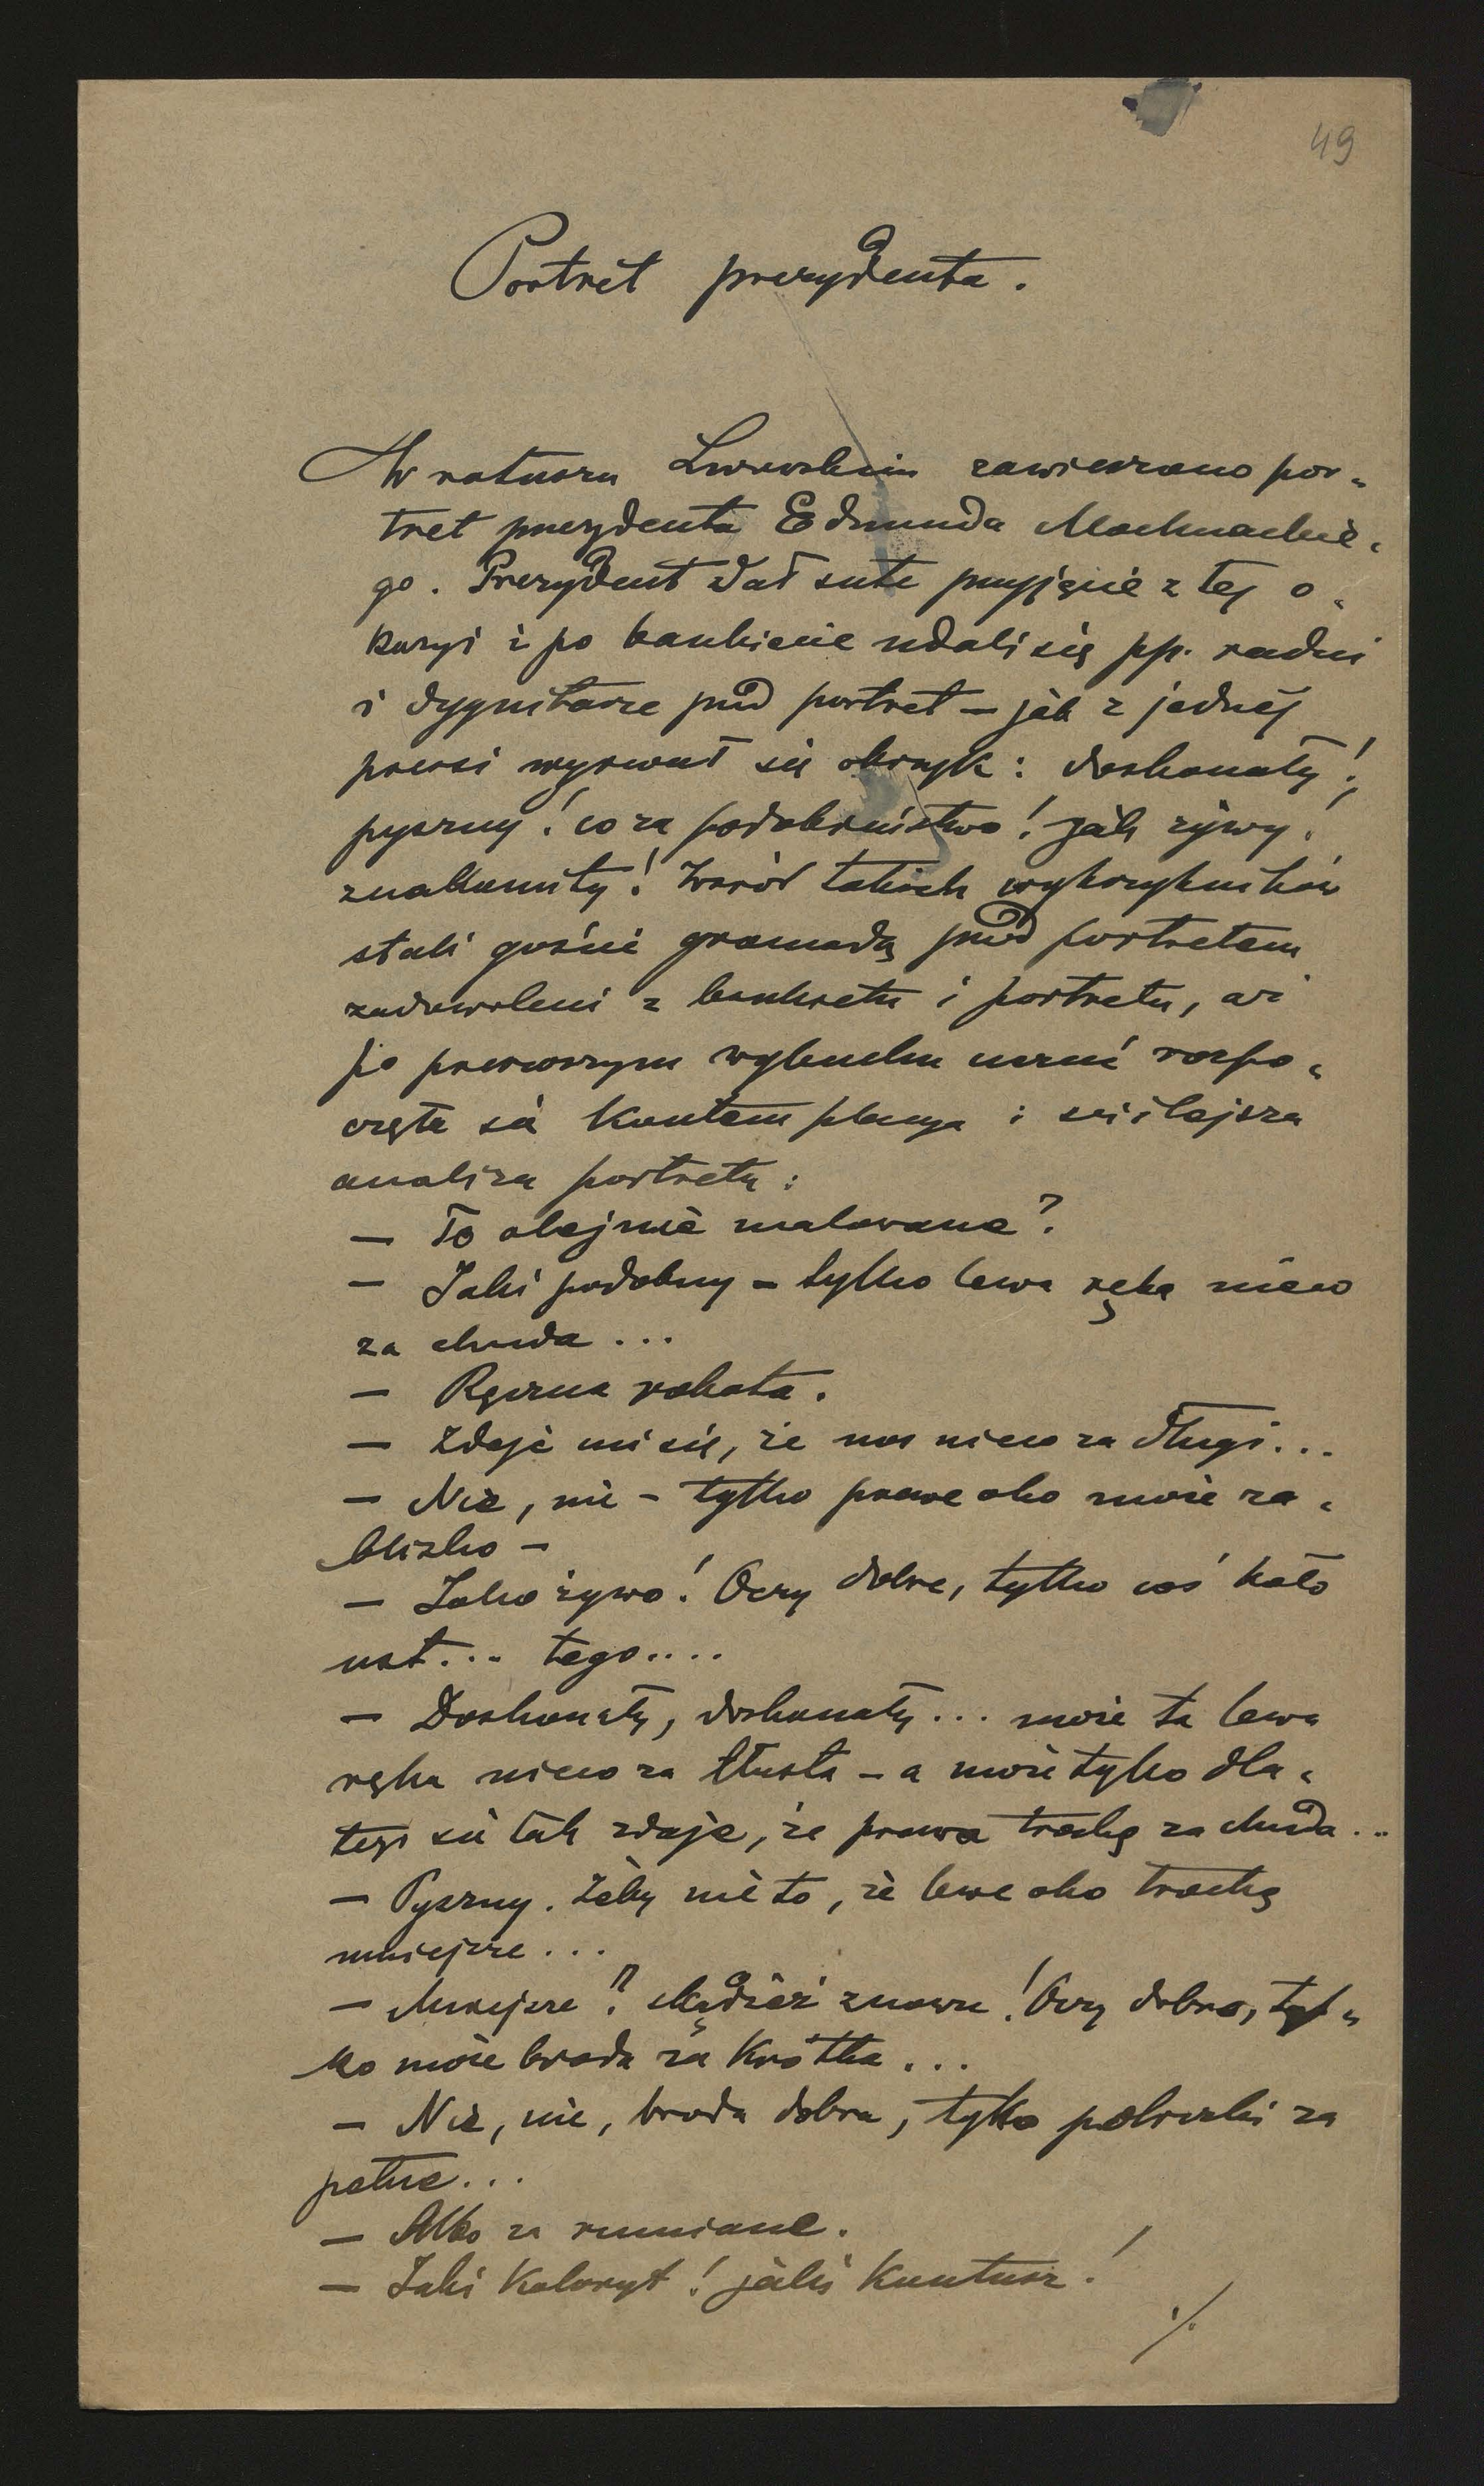 49
Portret prezydenta.
W ratuszu Lwowskim zawieszono por-
tret prezydenta Edmunda Mochnackie-
go. Prezydent dał sute przyjęcie z tej o-
kazyi i po bankiecie udali się pp. radni
i dygnitarze przed portret – jak z jednej
piersi wyrwał się okrzyk: doskonały!
pyszny! co za podobieństwo! jak żywy!
znakomity! Wśród takich wykrzykników
stali goście gromadą przed portretem
zadowoleni z bankietu i portretu, aż
po pierwszym wybuchu uczuć rozpo-
częła się kontemplacya i ściślejsza
analiza portretu:
– To olejnie malowane?
– Jaki podobny – tylko lewa ręka nieco
za chuda ...
– Ręczna robota.
– Zdaje mi się, że nos nieco za długi...
– Nie, nie – tylko prawe oko może za-
blizko –
– Jako żywo! Oczy dobre, tylko coś koło
ust... tego....
– Doskonały, doskonały... może ta lewa
ręka nieco za tłusta – a może tylko dla-
tego się tak zdaje, że prawa trochę za chuda...
– Pyszny. Żeby nie to, że lewe oko trochę
mniejsze...
– Mniejsze? Gdzież znowu! Oczy dobre, tyl-
ko może broda za krótka...
– Nie, nie, broda dobra, tylko policzki za
pełne...
– Albo za rumiane.
– Jaki koloryt! jaki kontusz!
./.